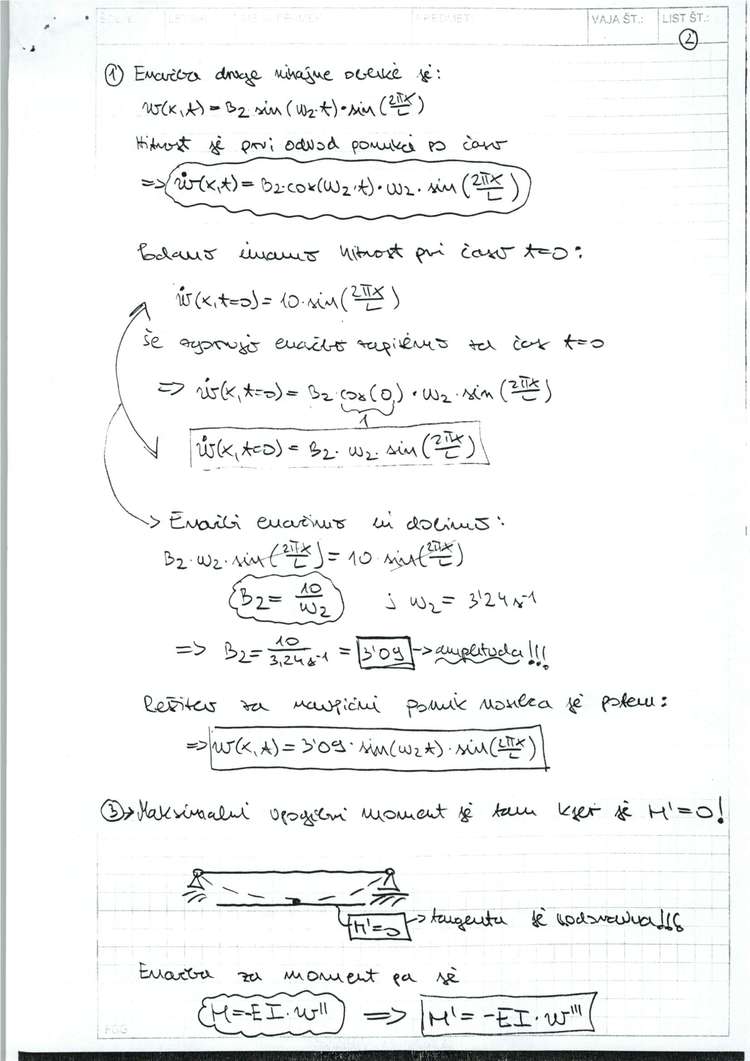 VAJA ŠT.: LIST ŠT.:
2
① Enačba druge nihajne oblike je:
w(x,t) = B₂ sin(ω₂·t)·sin(2πx/L)
Hitrost je prvi odvod pomika po času
=> ẇ(x,t) = B₂·cos(ω₂·t)·ω₂·sin(2πx/L)
Podano imamo hitrost pri času t=0:
ẇ(x,t=0) = 10·sin(2πx/L)
Še zgornjo enačbo zapišemo za čas t=0
=> ẇ(x,t=0) = B₂·cos(0)·ω₂·sin(2πx/L)
1
ẇ(x,t=0) = B₂·ω₂·sin(2πx/L)
-> Enačbi enačimo in dobimo:
B₂·ω₂·sin(2πx/L) = 10 sin(2πx/L)
B₂ = 10/ω₂ ; ω₂ = 3'24 s⁻¹
=> B₂ = 10/3,24 s⁻¹ = 3'09 -> amplituda!!!
Rešitev za navpični pomik nosilca je potem:
=> w(x,t) = 3'09·sin(ω₂t)·sin(2πx/L)
③ -> Maksimalni upogibni moment je tam kjer je M'=0!
M'=0 -> tangenta je vodoravna!!!
Enačba za moment pa je
M=-EI·w'' => M'=-EI·w'''
FGG